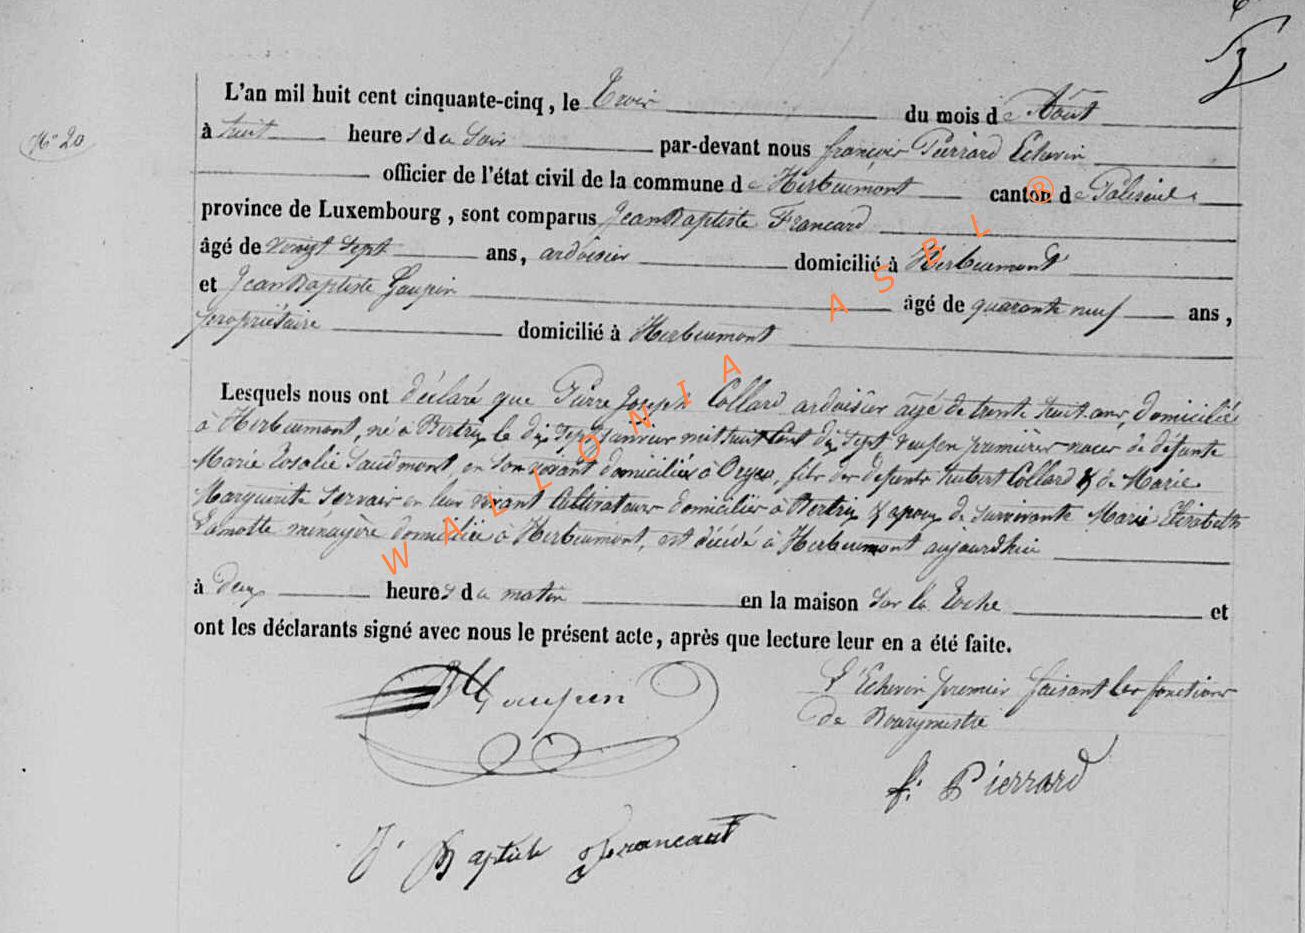 N° 20
L'an mil huit cent cinquante-cinq, le Trois du mois de Août
à huit heures du Soir par-devant nous françois Pierrard Echevin
officier de l'état civil de la commune de Herbeumont canton de Paliseul
province de Luxembourg, sont comparus Jean Baptiste Francard
âgé de vingt sept ans, ardoisier domicilié à Herbeumont
et Jean Baptiste Gaupin âgé de quarante neuf ans,
propriétaire domicilié à Herbeumont
Lesquels nous ont déclaré que Pierre Joseph Collard ardoisier âgé de trente huit ans, domicilié
à Herbeumont, né à Bertrix le dix sept janvier mil huit Cent dix sept veuf en premières noces de défunte
Marie Rosalie Saudmont en son vivant domiciliée à Orgeo, fils des défunts hubert Collard & de Marie
Marguerite Servais en leur vivant Cultivateurs domiciliés à Bertrix & époux de survivante Marie Elisabeth
Lamotte ménagère domiciliée à Herbeumont, est décédé à Herbeumont aujourdhui
à deux heures du matin en la maison sur la Roche et
ont les déclarants signé avec nous le présent acte, après que lecture leur en a été faite.
L'Echevin premier faisant les fonctions
de Bourgmestre
Gaupin
f. Pierrard
J. Baptiste Francart
WALLONIA ASBL ®